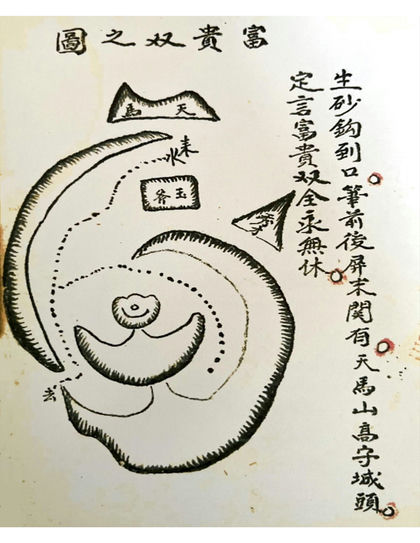 富貴双之圖
生砂鈎到口筆前後屏末関有天馬山髙守城頭
定言富貴双全永無休
天馬
来水
玉
去